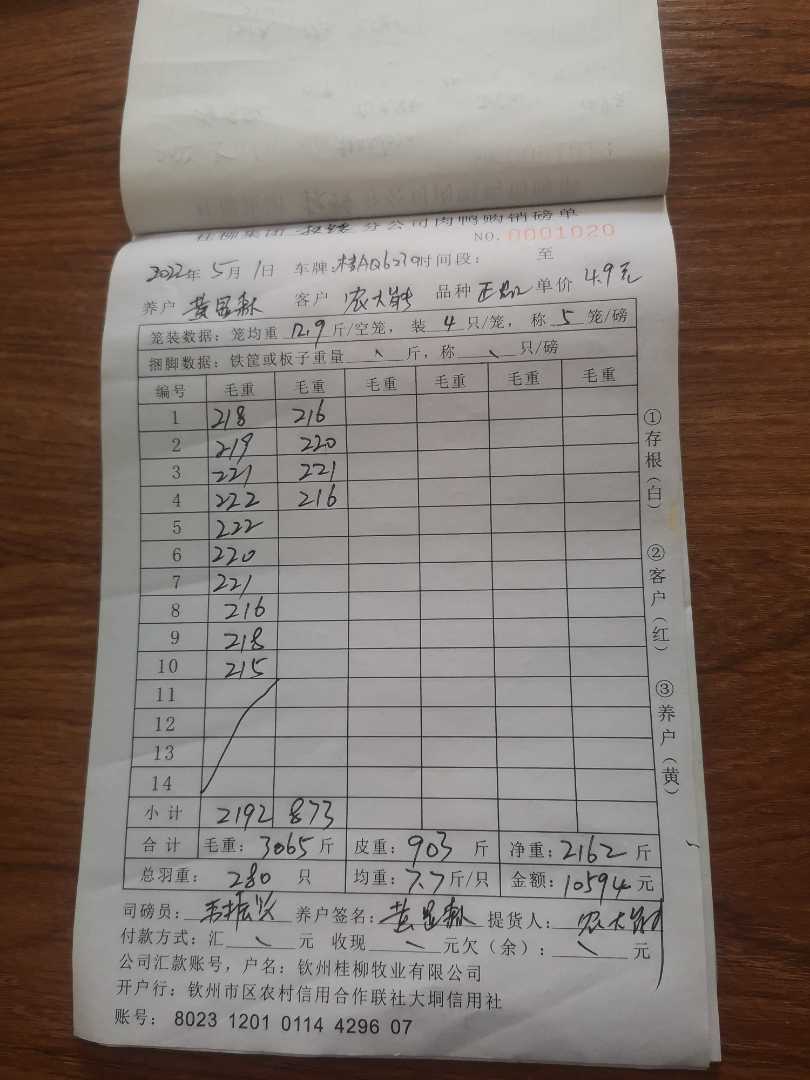 桂柳集团 分公司肉鸭购销磅单
NO. 0001020
2022年 5月 1日 车牌:桂AQ6270 时间段: 至
养户 黄显森 客户 农大 品种 正 单价 4.9元
笼装数据: 笼均重 12.9 斤/空笼, 装 4 只/笼, 称 5 笼/磅
捆脚数据: 铁筐或板子重量 \ 斤, 称 \ 只/磅
编号 毛重 毛重 毛重 毛重 毛重 毛重
1 218 216
2 219 220
3 221 221
4 222 216
5 222
6 220
7 221
8 216
9 218
10 215
11
12
13
14
小计 2192 873
合计 毛重: 3065 斤 皮重: 903 斤 净重: 2162 斤
总羽重: 280 只 均重: 7.7 斤/只 金额: 10594 元
司磅员: 韦振 养户签名: 黄显森 提货人: 农大
付款方式: 汇 \ 元 收现 \ 元欠(余): \ 元
公司汇款账号, 户名: 钦州桂柳牧业有限公司
开户行: 钦州市区农村信用合作联社大垌信用社
账号: 8023 1201 0114 4296 07
①存根(白)
②客户(红)
③养户(黄)